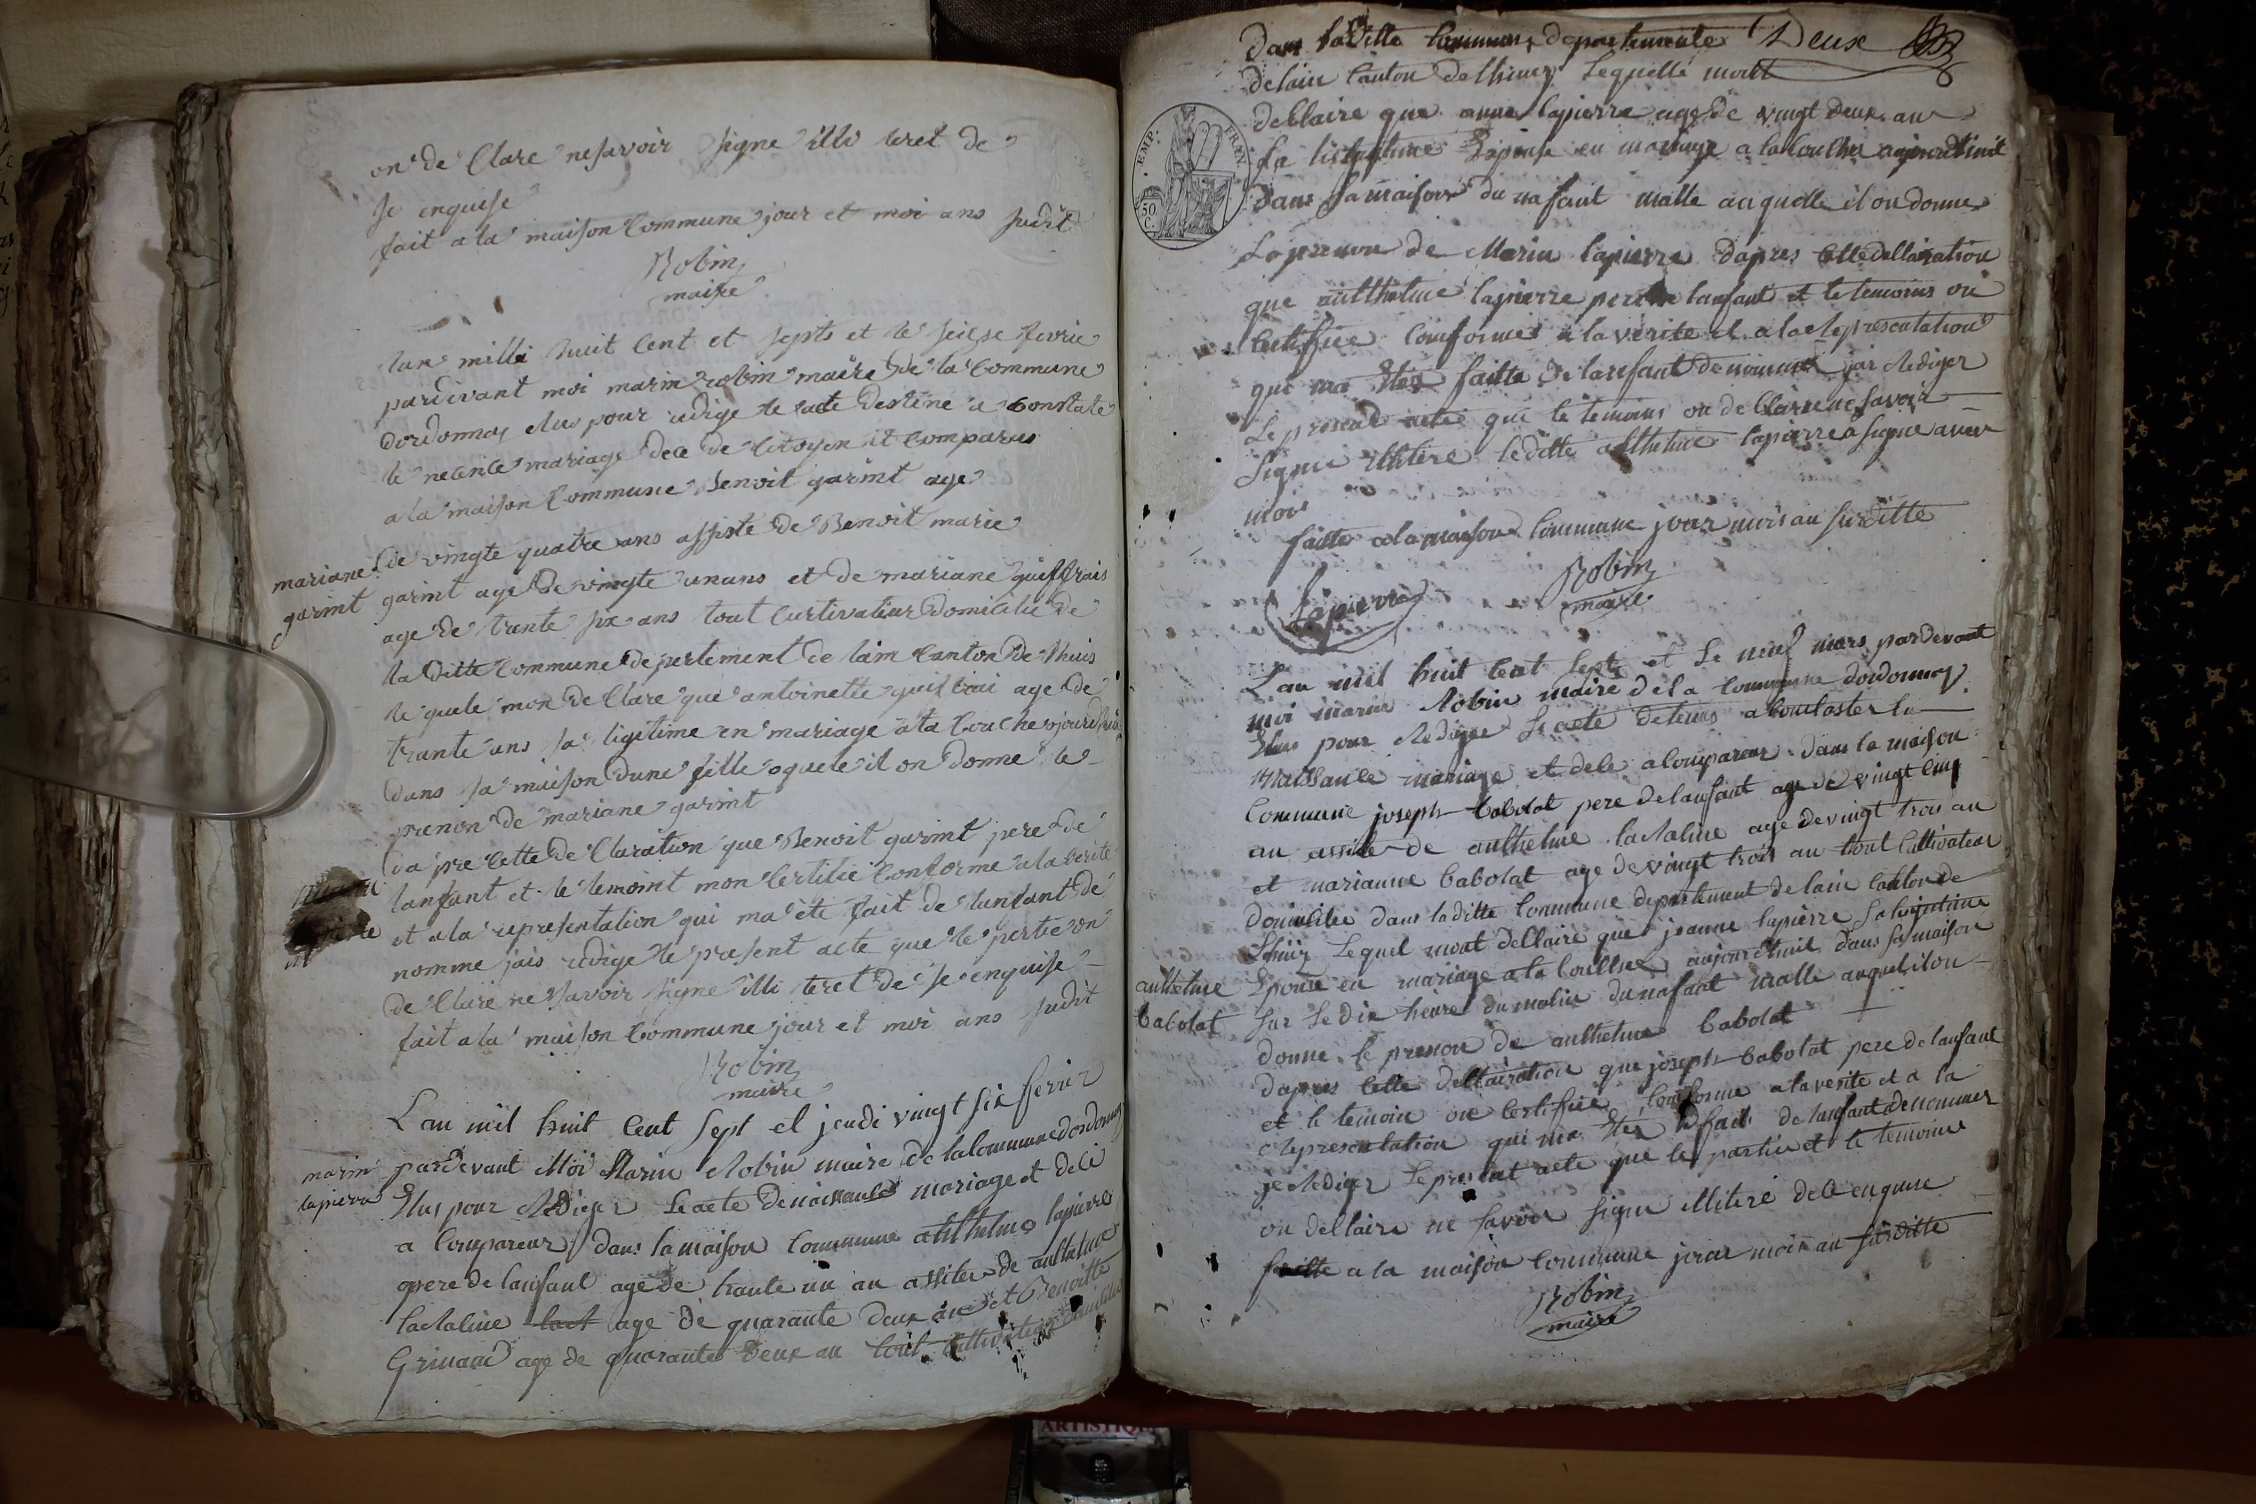 on de Clare nesavoir signe illi teret de
se enquise
fait a la maison Commune jour et moi ans sudit
Robin
maire
lan mille huit Cent et septs et le seigse fevrie
pardevant moi marin robin maire de la Commune
dordonnas elus pour redige le acte destine a Constate
le necence mariage dece de Citoyen it Comparus
a la maison Commune Benoit garint age
de vingte quatre ans assiste de Benoit marie
mariane
garint
garint age de vingte unans et de mariane guiffrais
age de trante six ans tout Curtivateur domicilie de
la ditte Commune depertement de lain Canton de lhuis
le quele mon de Clare que antoinette guiffrai age de
trante ans sa ligitime en mariage a la Couche ojourdhui
dans sa maison dune fille oquele il on donne le
prenon de mariane garint
da pre Cette de Claration que Benoit garint pere de
lanfant et le temoint mon Certifie Conforme a la verite
et a la representation qui ma ete fait de lanfant de
nomme jais redige le present acte que le pertie on
de Clare ne savoir signe illi teret de se enquise
fait a la maison Commune jour et moi ans sudit
Robin
maire
Lan mil huit Cent sept et jeudi vingt six ferier
marin
lapierre
pardevant Moi Marin Robin maire de la Commune dordonnas
Elus pour Rediger Le acte de naissance mariage et dece
a Compareur dans la maison Commune anthelme lapierre
pere de lanfant age de trante un an assiter de anthelme
lactaline lact age de quarante deux an et Benoitte
Grimand age de quarante deux an tout Cultivateur domicilie
Dans la ditte Commune departemente Deux
de lain Canton de lhuis Lequelle mont
dellaire que anne lapierre age de vingt deux an
Sa lictigitime Epouse en mariage a la Coulher aujourdhuit
dans sa maison du nafant malle au quelle il on donne
Le prenon de Marin lapierre dapres Cette dellairation
que anthelme lapierre pere de lanfant et le temoins on
Certifiee Conforme a la verite et a la Representation
qui ma Eter faitte de lanfant denommer jai Rediger
Le present acte que le temoins on de Clairene savoir
signie illitere le ditte anthelme lapierre a signe avec
moi
faitte a la maison Commune jour mois an sus ditte
Lapierre
Robin
maire
Lan mil huit Cent Septe et Le neuf mars par devant
moi marin Robin maire de la Commune dordonnas
Elus pour Rediger Le acte detenus a Contaster la
Naissance mariage et dece a Compareur dans la maison
Commune joseph babolat pere de lanfant age de vingt cinq
an assiter de anthelme lactaline age de vingt trois an
et marianne babolat age de vingt trois an tout Cultivateur
domicilie dans la ditte Commune departement de lain Canton de
Lhuis Lequel mont dellaire que jeanne lapierre sa legitime
anthelme
babolat
Epouse en mariage a la Coulher aujourdhuit dans sa maison
sur Le dix heure du matin du nafant malle auquel il on
donne le prenon de anthelme babolat
dapres Cette dellairation que joseph babolat pere de lanfant
et le temoin on Certifiee Conforme a la verite et a la
Representation qui ma Eter fait de lanfant denommer
je Rediger Le present acte que le partie et le temoins
on dellaire ne savoir signe illitere de Ce enquise
faitte a la maison Commune jour mois an sus ditte
Robin
maire
EMP. FRAN.
50 C.
ARTISTIQU